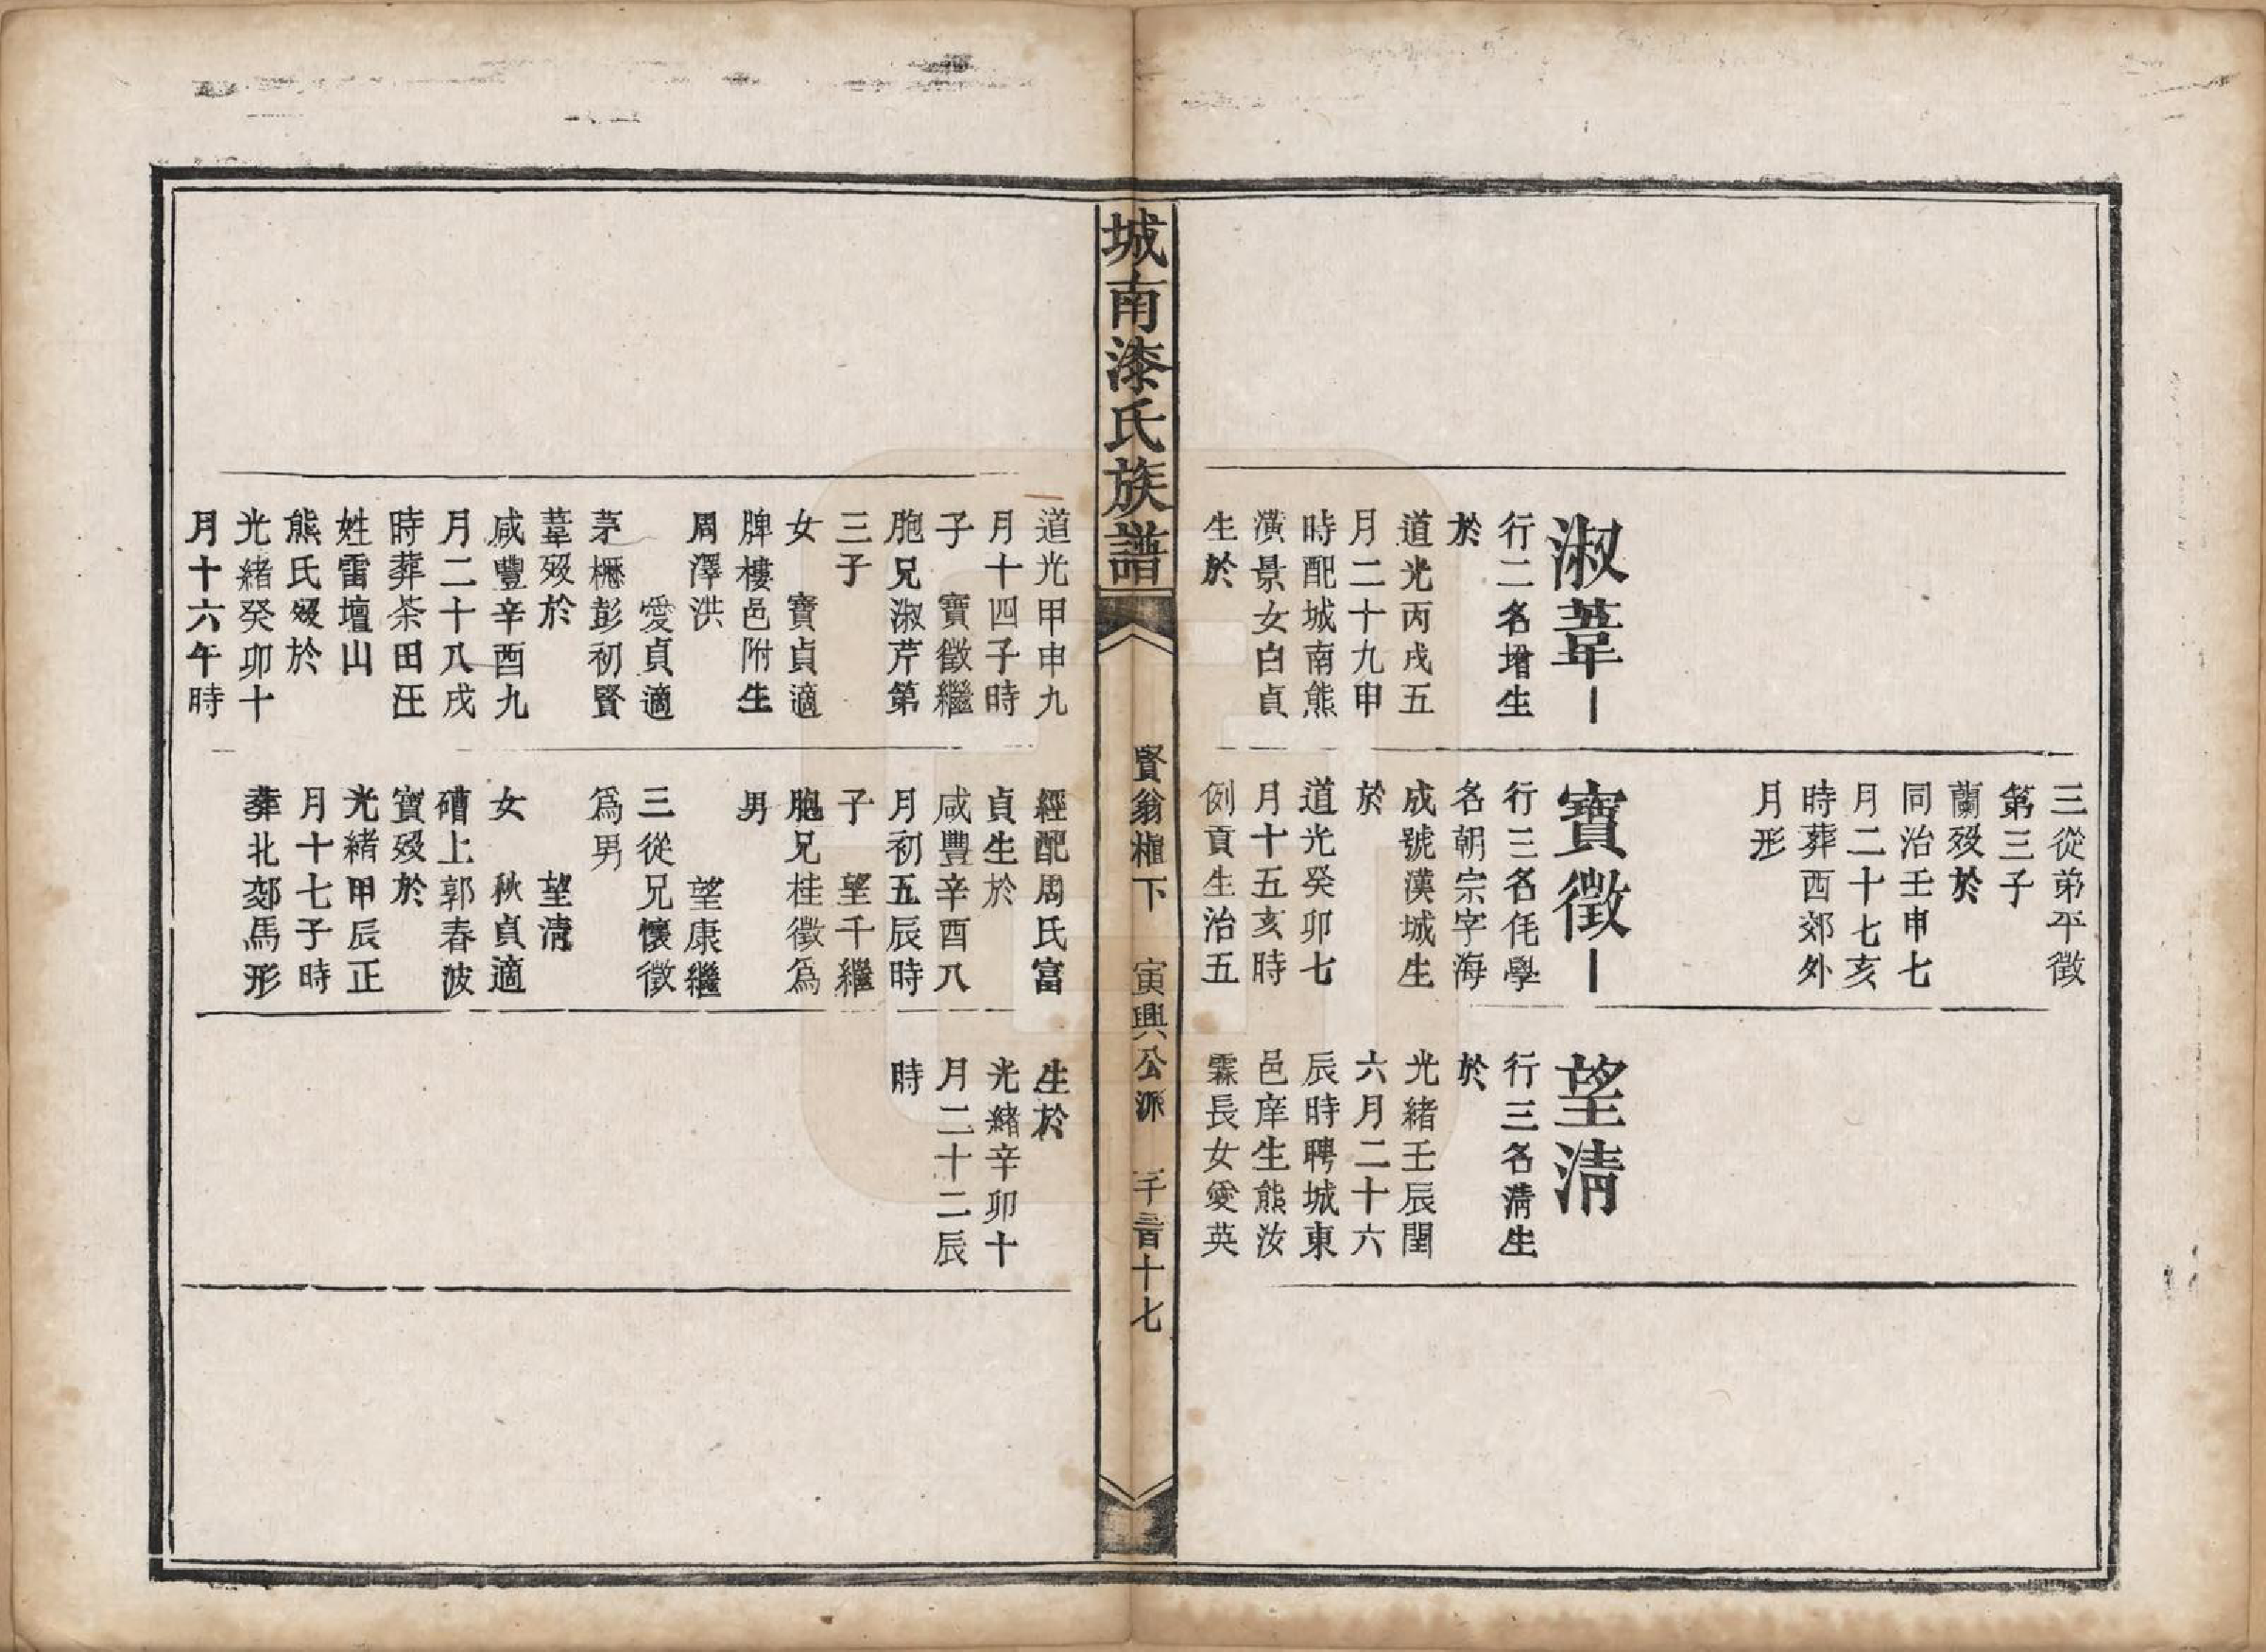 三從弟平徵
第三子
蘭歿於
同治壬申七
月二十七亥
時葬西郊外
月形
淑葦
行二名增生
於
道光丙戌五
月二十九申
時配城南熊
潢景女白貞
生於
寶徵
行三名毓學
名朝宗字海
成號漢城生
於
道光癸卯七
月十五亥時
例貢生治五
望淸
行三名淸生
於
光緒壬辰閏
六月二十六
辰時聘城東
邑庠生熊汝
霖長女愛英
城南漆氏族譜
賢翁植下 寅興公派 千二百十七
道光甲申九
月十四子時
子 寶徵繼
胞兄淑芹第
三子
女 寶貞適
牌樓邑附生
周澤洪
愛貞適
茅櫪彭初賢
葦歿於
咸豐辛酉九
月二十八戌
時葬茶田汪
姓雷壇山
熊氏歿於
光緒癸卯十
月十六午時
經配周氏富
貞生於
咸豐辛酉八
月初五辰時
子 望千繼
胞兄桂徵為
男
望康繼
三從兄懷徵
為男
望淸
女 秋貞適
磳上郭春波
寶歿於
光緒甲辰正
月十七子時
葬北郊馬形
生於
光緒辛卯十
月二十二辰
時